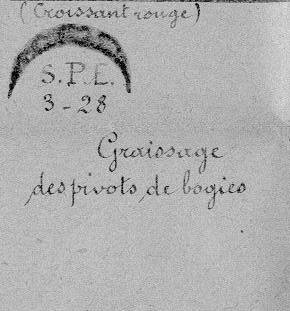 (Croissant rouge)
S.P.E.
3-28
Graissage
des pivots de bogies